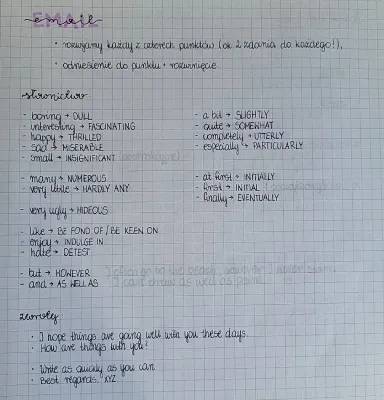 email
• rozwijamy każdy z czterech punktów (ok 2 zdania do każdego!),
• odniesienie do punktu + rozwinięcie
słownictwo
- boring → DULL
- interesting → FASCINATING
- happy → THRILLED
- sad → MISERABLE
- small → INSIGNIFICANT
- many → NUMEROUS
- very little → HARDLY ANY
- very ugly → HIDEOUS
- like → BE FOND OF / BE KEEN ON
- enjoy → INDULGE IN
- hate → DETEST
- but → HOWEVER
- and → AS WELL AS
- a bit → SLIGHTLY
- quite → SOMEWHAT
- completely → UTTERLY
- especially → PARTICULARLY
- at first → INITIALLY
- first → INITIAL
- finally → EVENTUALLY
zwroty
• I hope things are going well with you these days.
• How are things with you?
• Write as quickly as you can.
• Best regards, XYZ